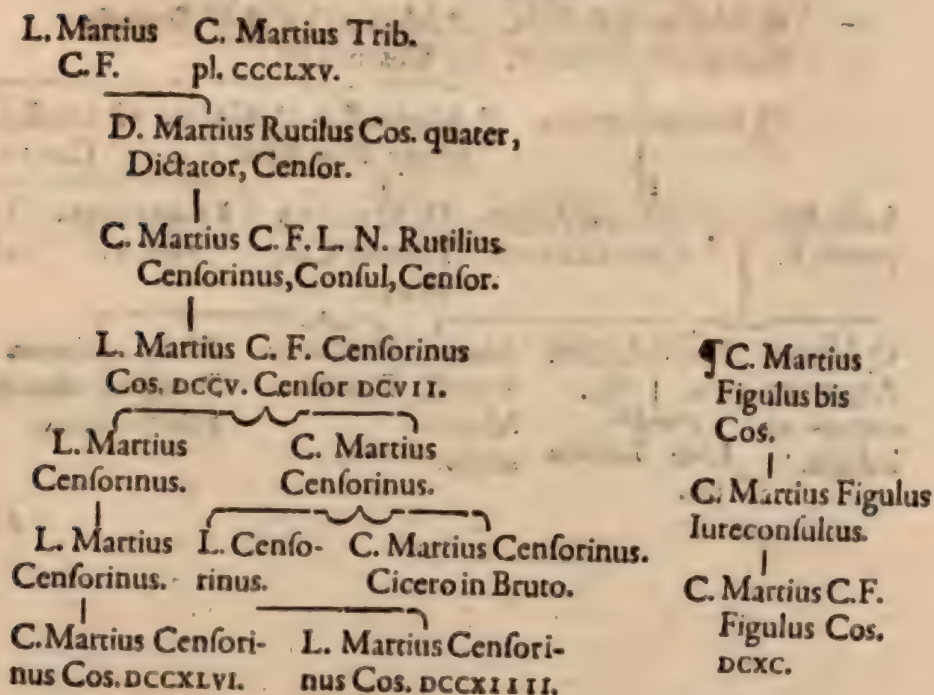 L. Martius C. Martius Trib.
C. F. pl. CCCLXV.
D. Martius Rutilus Cos. quater,
Dictator, Cenſor.
C. Martius C. F. L. N. Rutilius
Cenſorinus, Conſul, Cenſor.
L. Martius C. F. Cenſorinus
Cos. DCCV. Cenſor DCVII.
L. Martius C. Martius
Cenſorinus. Cenſorinus.
L. Martius L. Cenſo- C. Martius Cenſorinus.
Cenſorinus. rinus. Cicero in Bruto.
C. Martius Cenſori- L. Martius Cenſori-
nus Cos. DCCXLVI. nus Cos. DCCXIIII.
¶ C. Martius
Figulus bis
Cos.
C. Martius Figulus
Iureconſultus.
C. Martius C. F.
Figulus Cos.
DCXC.